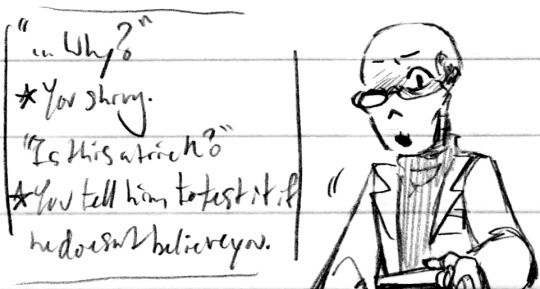 "... Why?"
*You shrug.
"Is this a trick?"
*You tell him to test it if
he doesn't believe you.